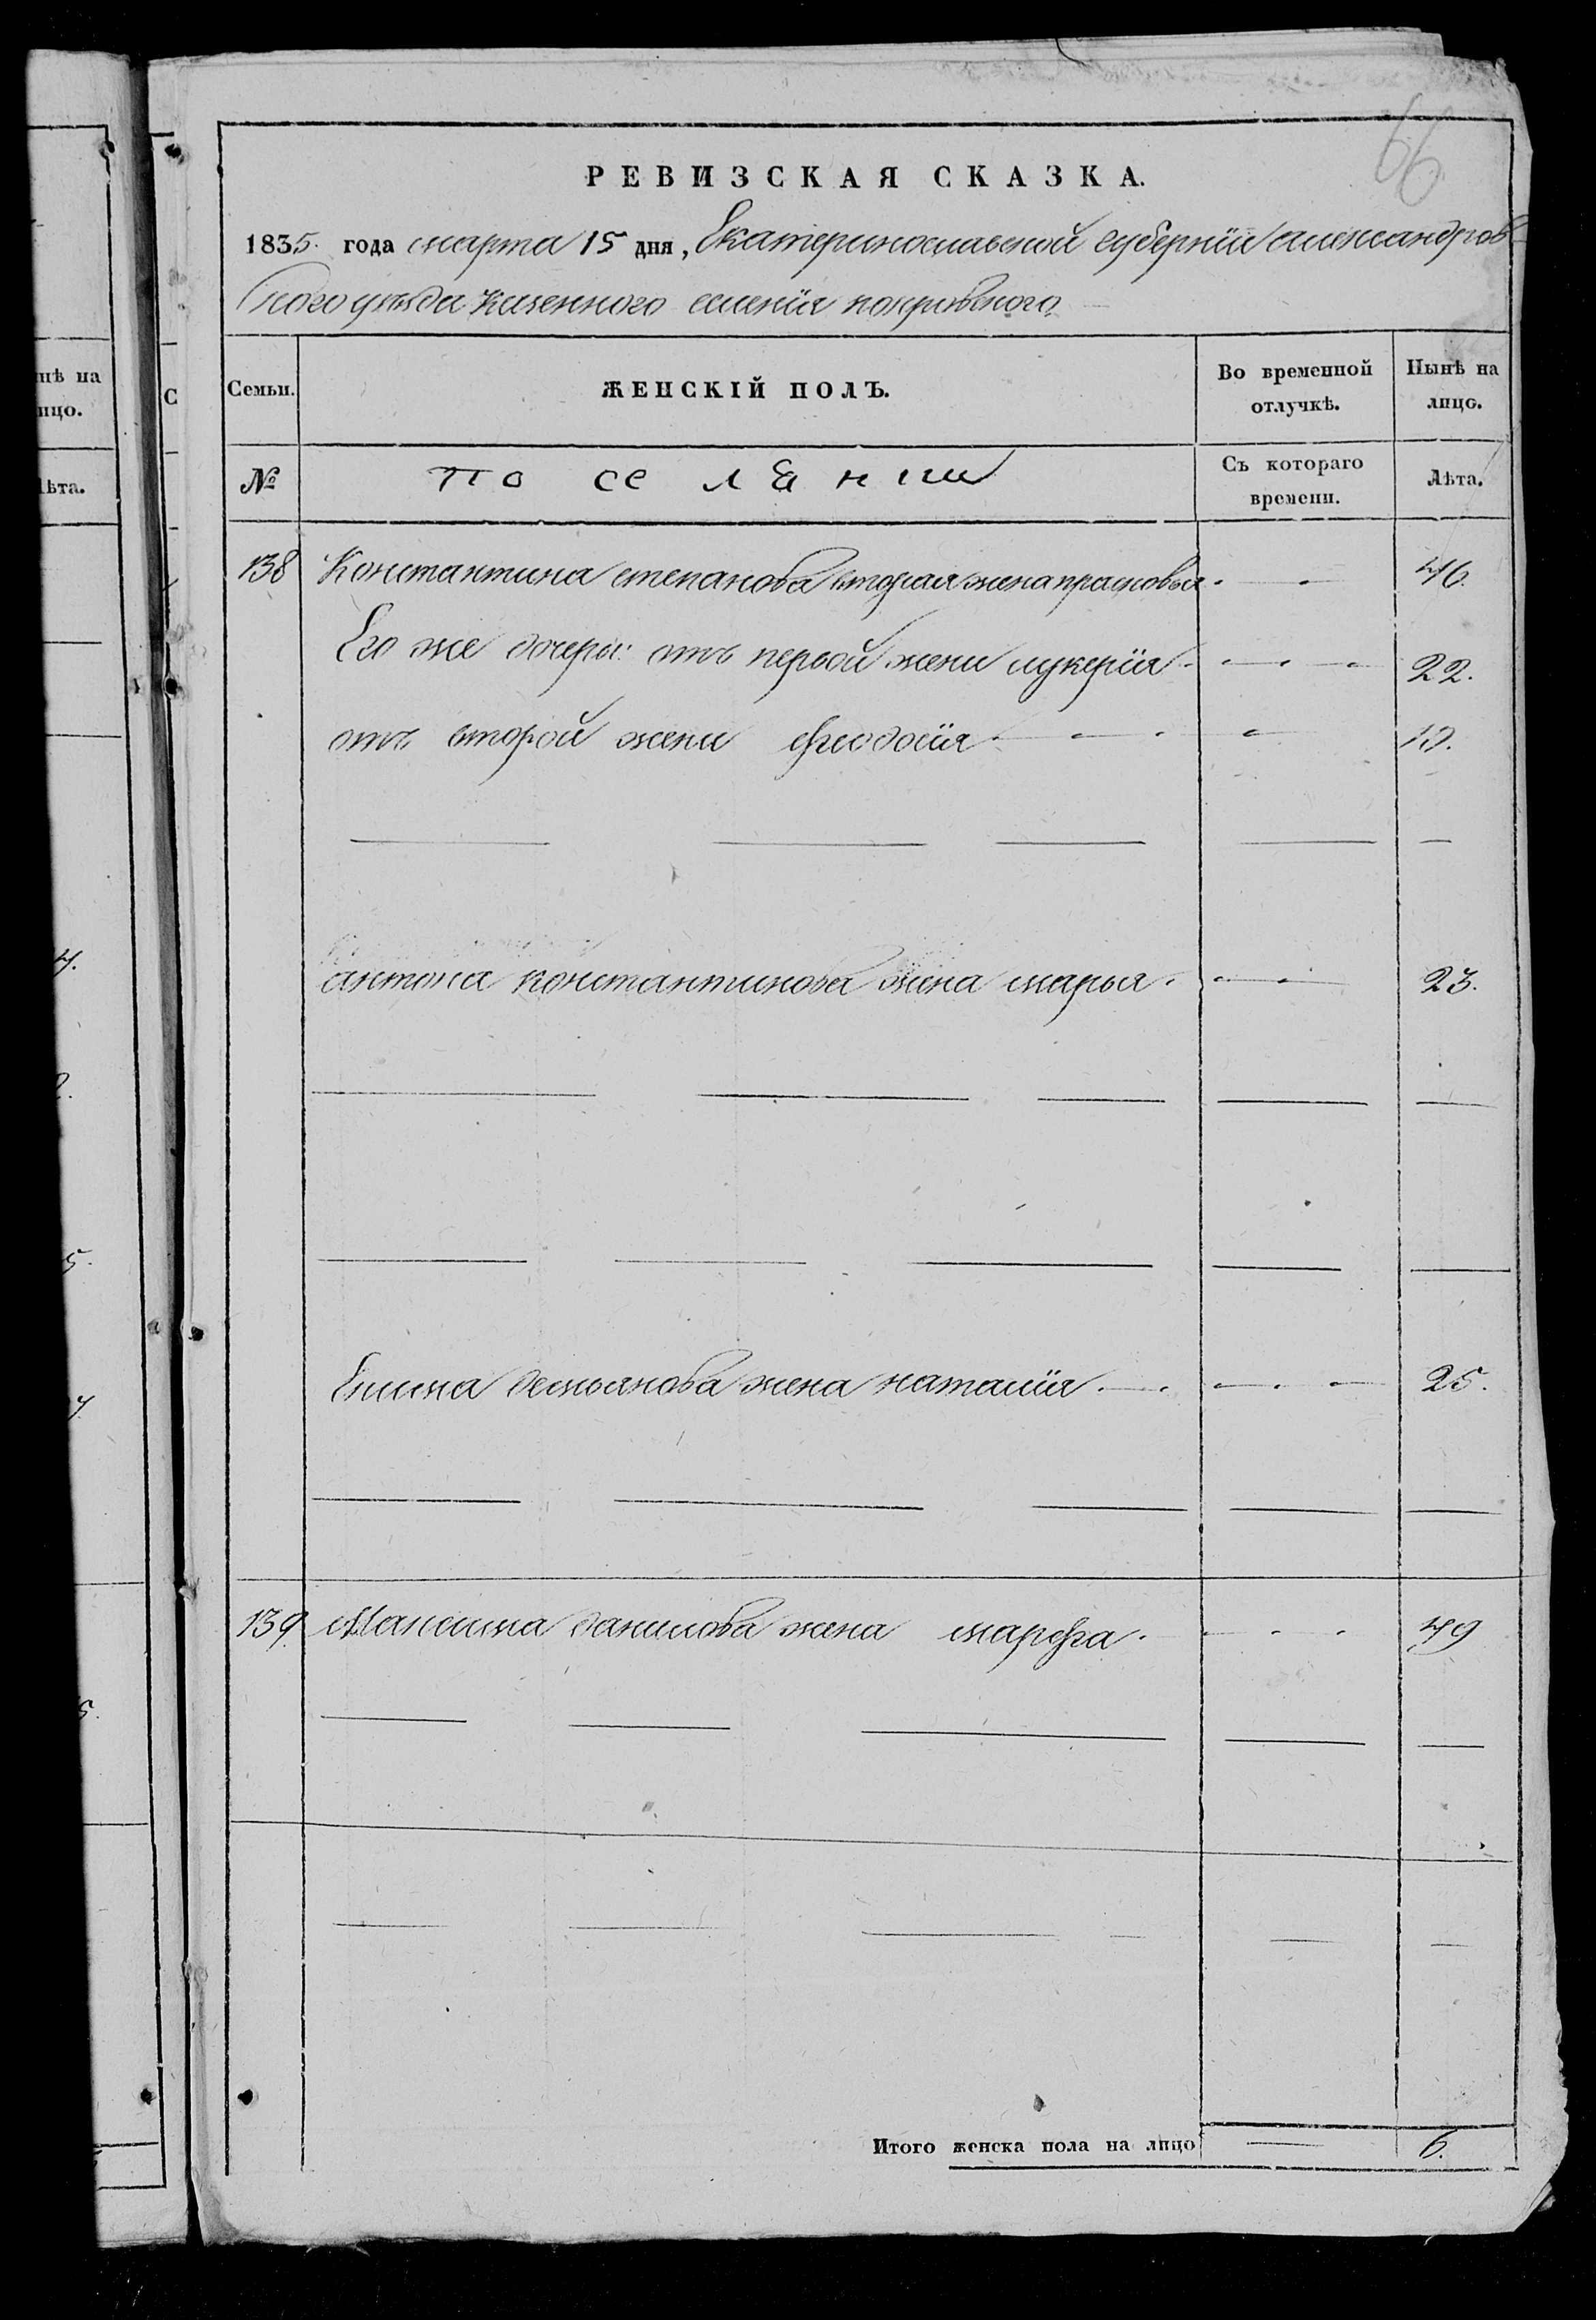 66
РЕВИЗСКАЯ СКАЗКА.
1835. года марта 15 дня, Екатеринославской губернїи александров
ского уѣзда казенного селенїя покровского
Семьи. ЖЕНСКІЙ ПОЛЪ. Во временной отлучкѣ. Нынѣ на лицо.
№ поселянки Съ котораго времени. Лѣта.
138 Константина степанова вторая жена прасковья 46.
Его же дочеры: отъ первой жены лукерїя 22.
отъ второй жены феодосїя 19.
антона константинова жена марья 23.
демьянова жена наталїя 25.
139. Максима данилова жена марфа 49
Итого женска пола на лицо 6.
нѣ на
ицо.
лѣта.
С